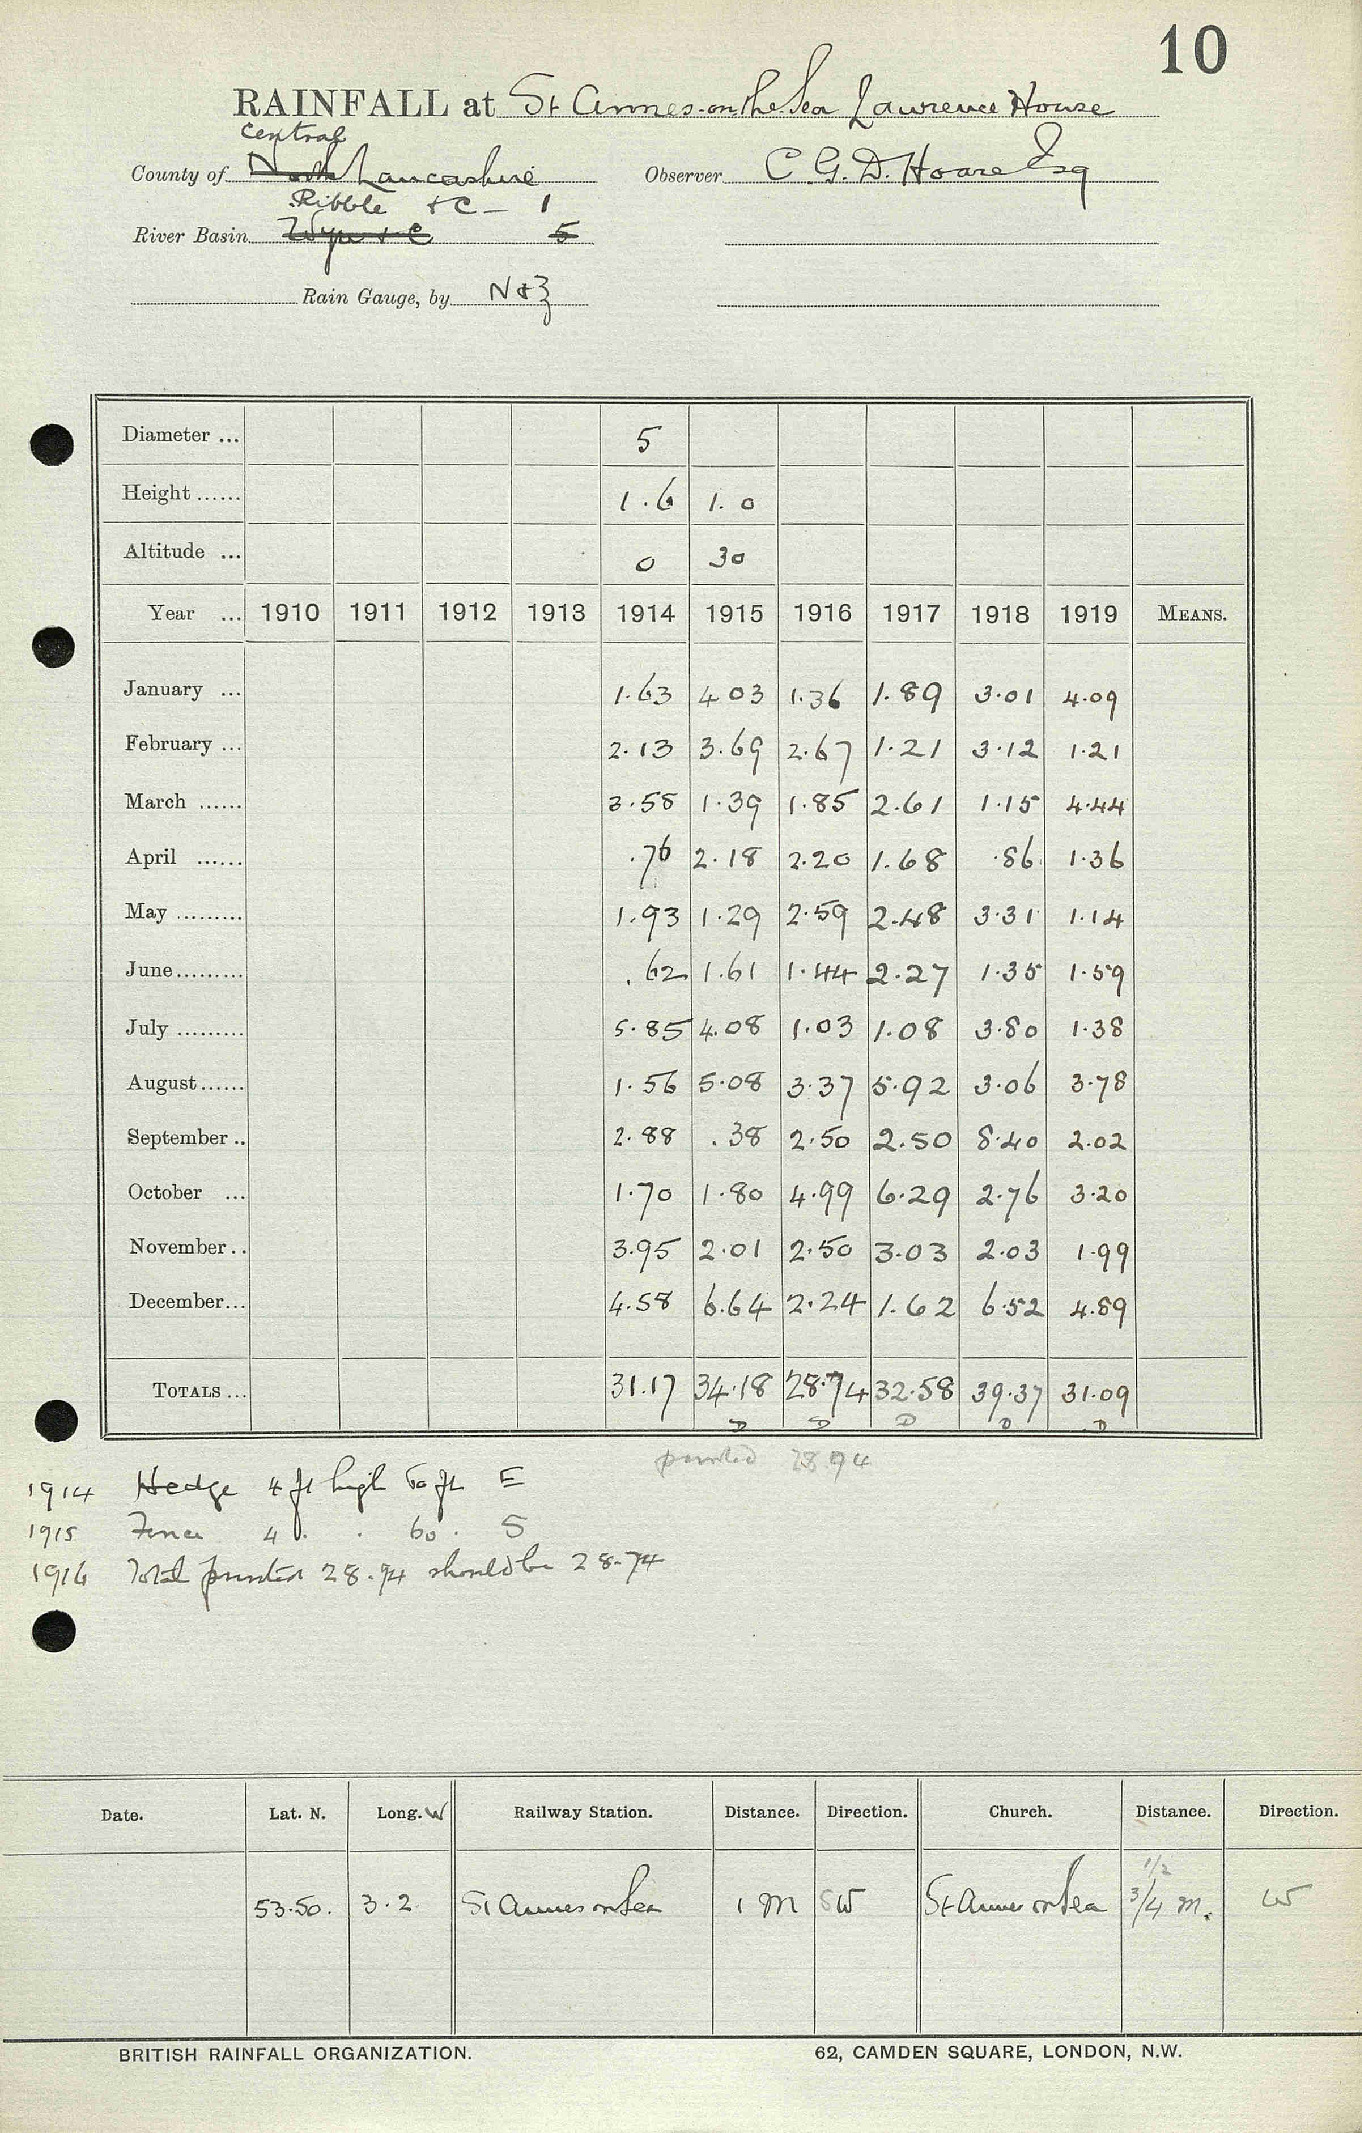 10
RAINFALL at St Annes-on-the-Sea Lawrence House
Central
County of North Lancashire Observer C. G. D. Hoare Esq
Ribble + C - 1
River Basin Wyre + C 5
Rain Gauge, by N & Z
Diameter ... 5
Height ...... 1.6 1.0
Altitude ... 0 30
Year ... 1910 1911 1912 1913 1914 1915 1916 1917 1918 1919 MEANS.
January ... 1.63 4.03 1.36 1.89 3.01 4.09
February ... 2.13 3.69 2.67 1.21 3.12 1.21
March ...... 3.58 1.39 1.85 2.61 1.15 4.44
April ...... .76 2.18 2.20 1.68 .86 1.36
May ......... 1.93 1.29 2.59 2.48 3.31 1.14
June......... .62 1.61 1.44 2.27 1.35 1.59
July ......... 5.85 4.08 1.03 1.08 3.80 1.38
August...... 1.56 5.08 3.37 5.92 3.06 3.78
September .. 2.88 .38 2.50 2.50 8.40 2.02
October ... 1.70 1.80 4.99 6.29 2.76 3.20
November.. 3.95 2.01 2.50 3.03 2.03 1.99
December... 4.58 6.64 2.24 1.62 6.52 4.89
TOTALS ... 31.17 34.18 28.74 32.58 39.37 31.09
D D D D D
printed 28.94
1914 Hedge 4 ft high 60 ft E
1915 Fence 4 . . 60 . S
1916 Total printed 28.94 should be 28.74
Date. Lat. N. Long. W Railway Station. Distance. Direction. Church. Distance. Direction.
1/2
53.50. 3.2 St Annes on Sea 1 M SW St Annes on Sea 3/4 M. W
BRITISH RAINFALL ORGANIZATION. 62, CAMDEN SQUARE, LONDON, N.W.